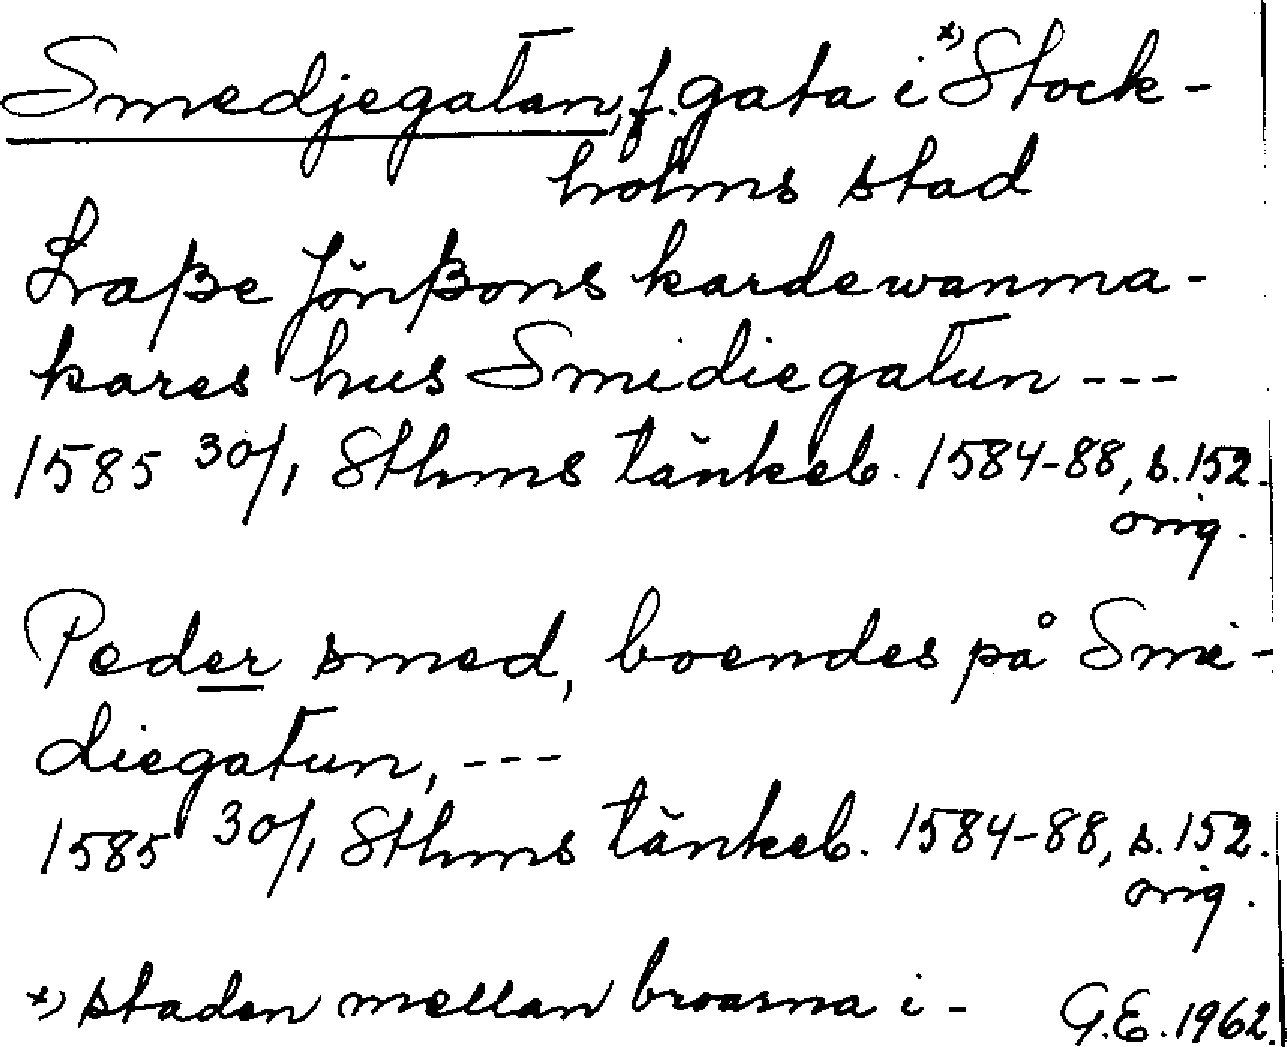 Smedjegatan, f. gata i x) Stock-
holms stad
Lraße Jönßons kardewanma-
kares hus Smidiegatun ---
1585 30/1 Sthms tänkeb. 1584-88, s. 152.
orig.
Peder smed, boendes på Smi-
diegatun, ---
1585 30/1 Sthms tänkeb. 1584-88, s. 152.
orig.
x) staden mellan broarna i - G.E. 1962.